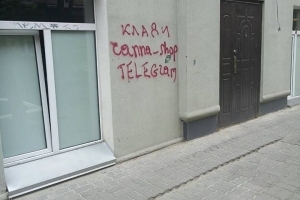 КЛАДИ
canna-shop
TELEGram